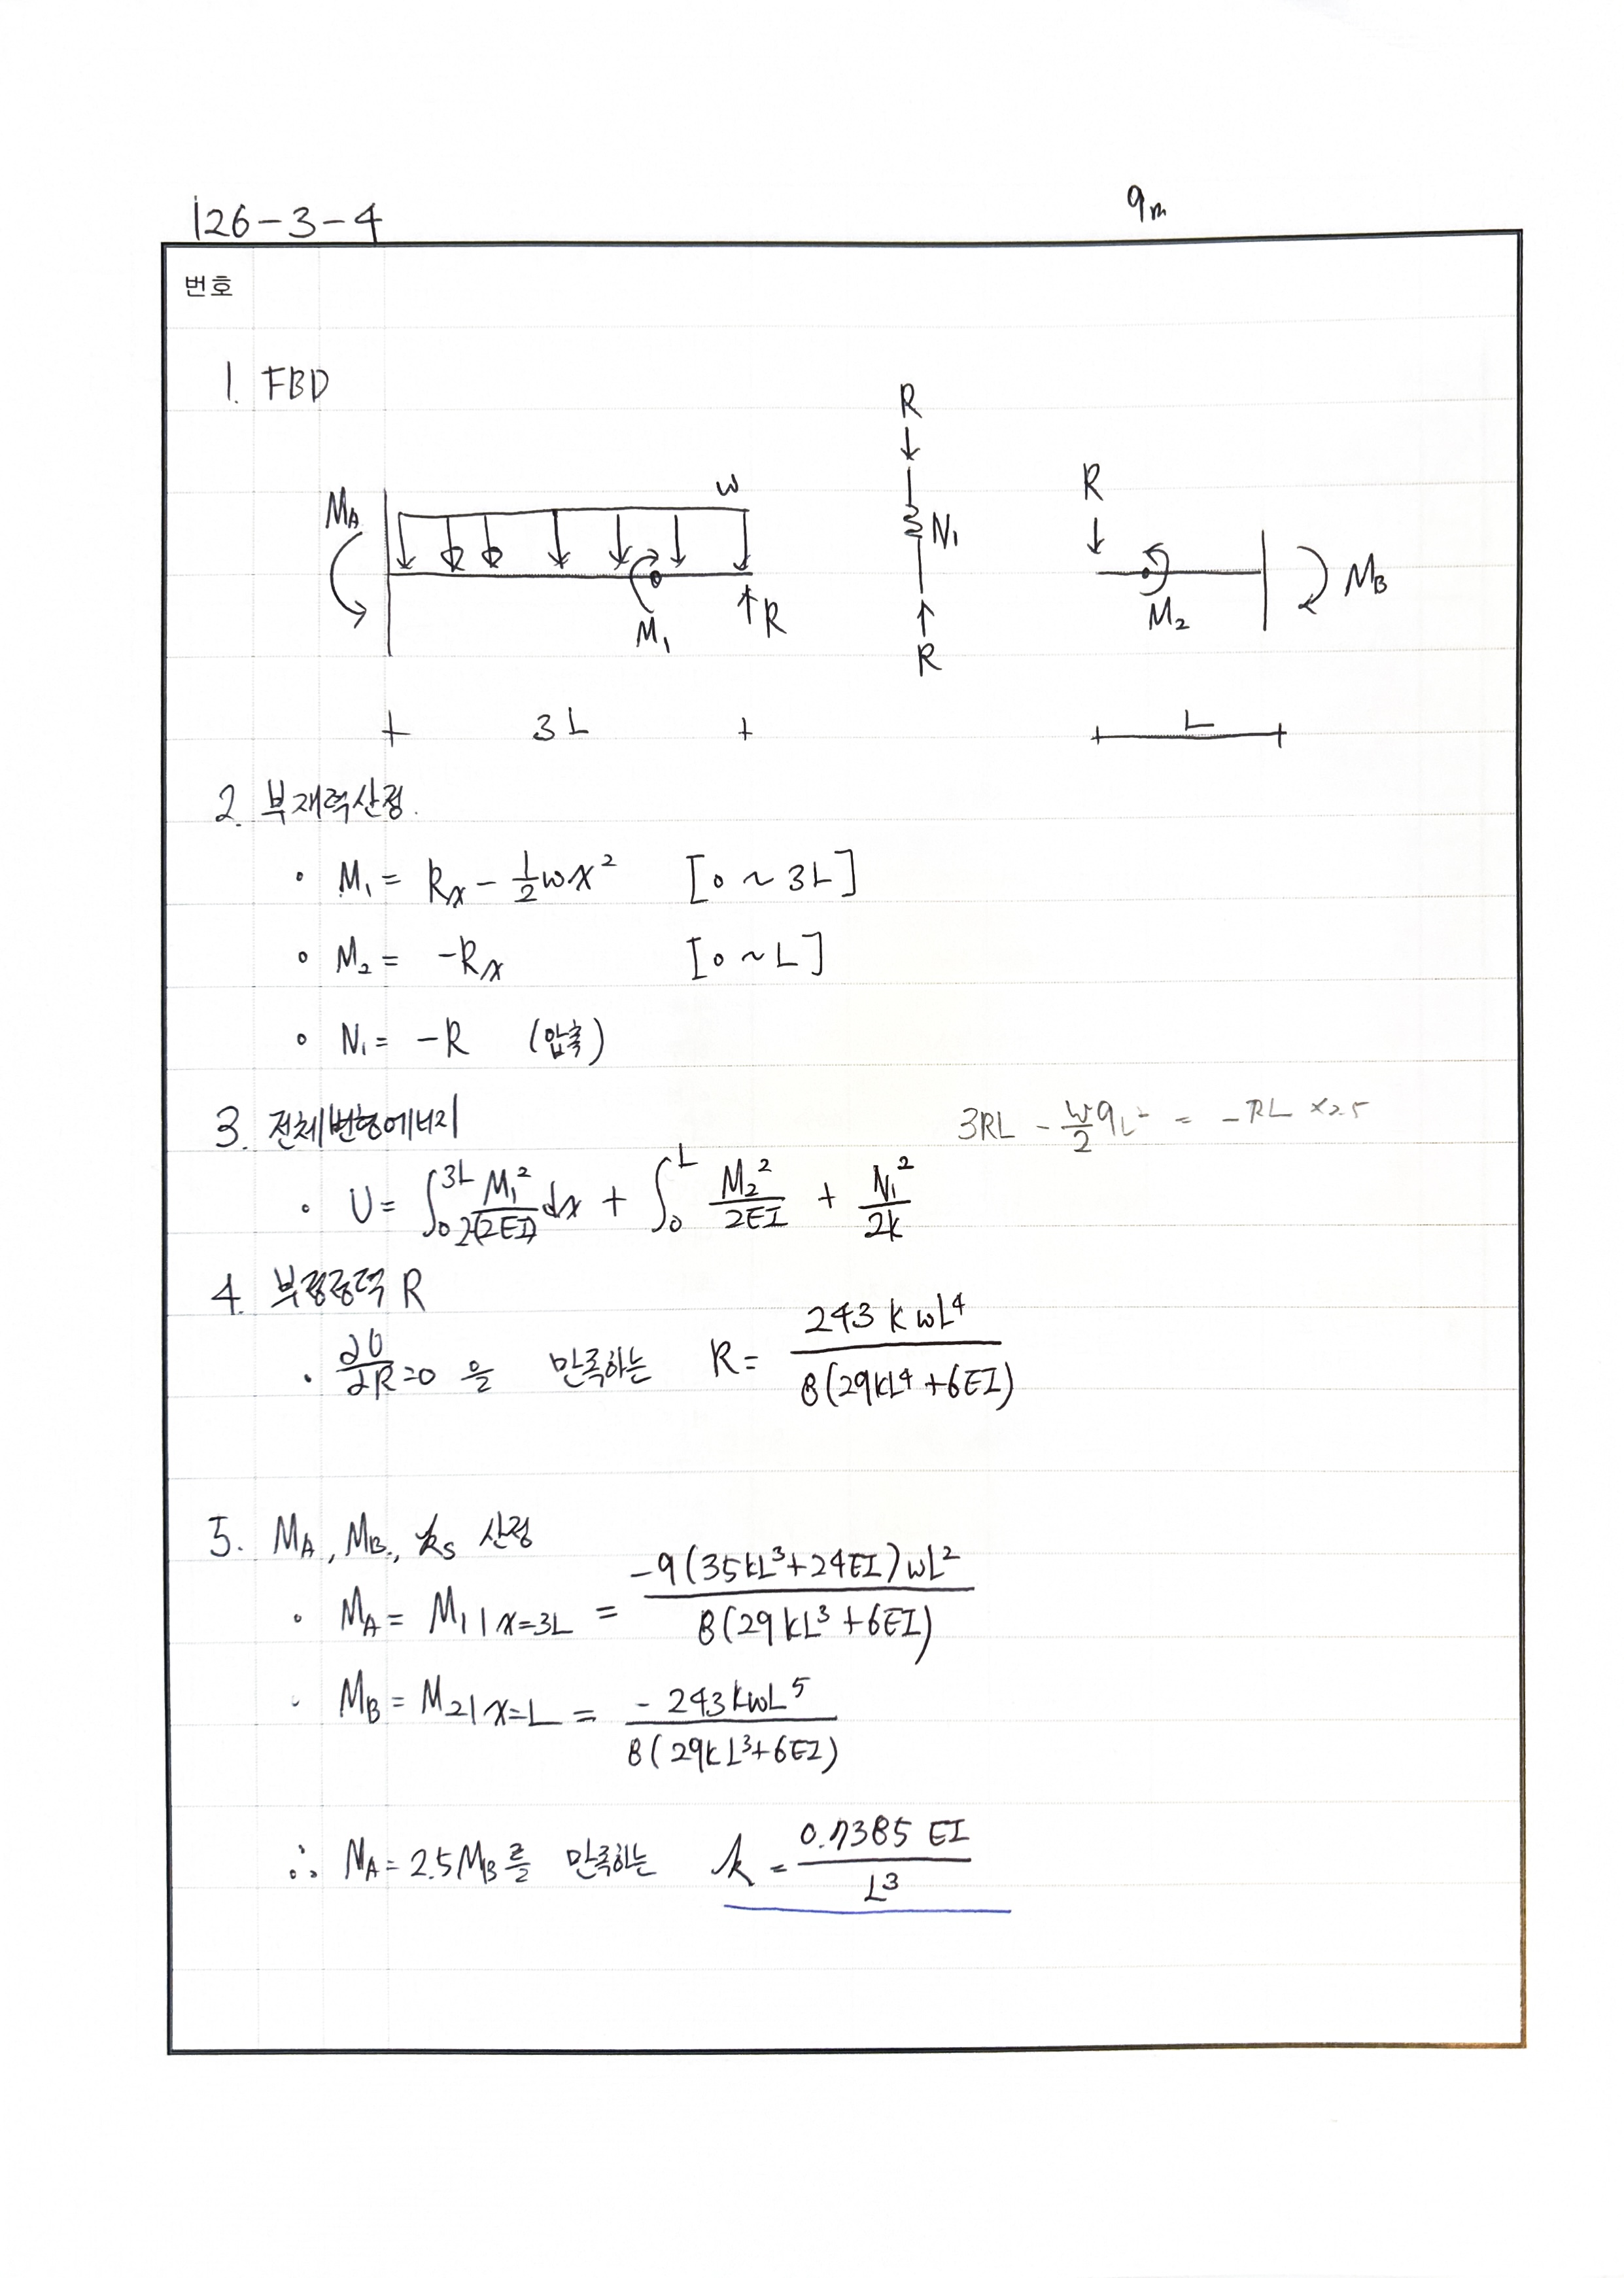 126-3-4
9m
번호
1. FBD
R
w
R
MA
N1
MB
M1
R
M2
R
3L
L
2. 부재력산정.
• M1 = Rx - 1/2 wx² [0 ~ 3L]
• M2 = -Rx [0 ~ L]
• N1 = -R (압축)
3. 전체변형에너지
3RL - w/2 9L² = -RL × 2.5
• U = ∫₀^3L M1²/2(2EI) dx + ∫₀^L M2²/2EI + N1²/2k
4. 부정정력 R
• ∂U/∂R = 0 을 만족하는 R = 243 k wL⁴ / 8(29kL⁴ + 6EI)
5. MA, MB, ks 산정
• MA = M1|x=3L = -9(35kL³ + 24EI)wL² / 8(29kL³ + 6EI)
• MB = M2|x=L = -243kwL⁵ / 8(29kL³ + 6EI)
∴ MA = 2.5MB를 만족하는 k = 0.7385 EI / L³